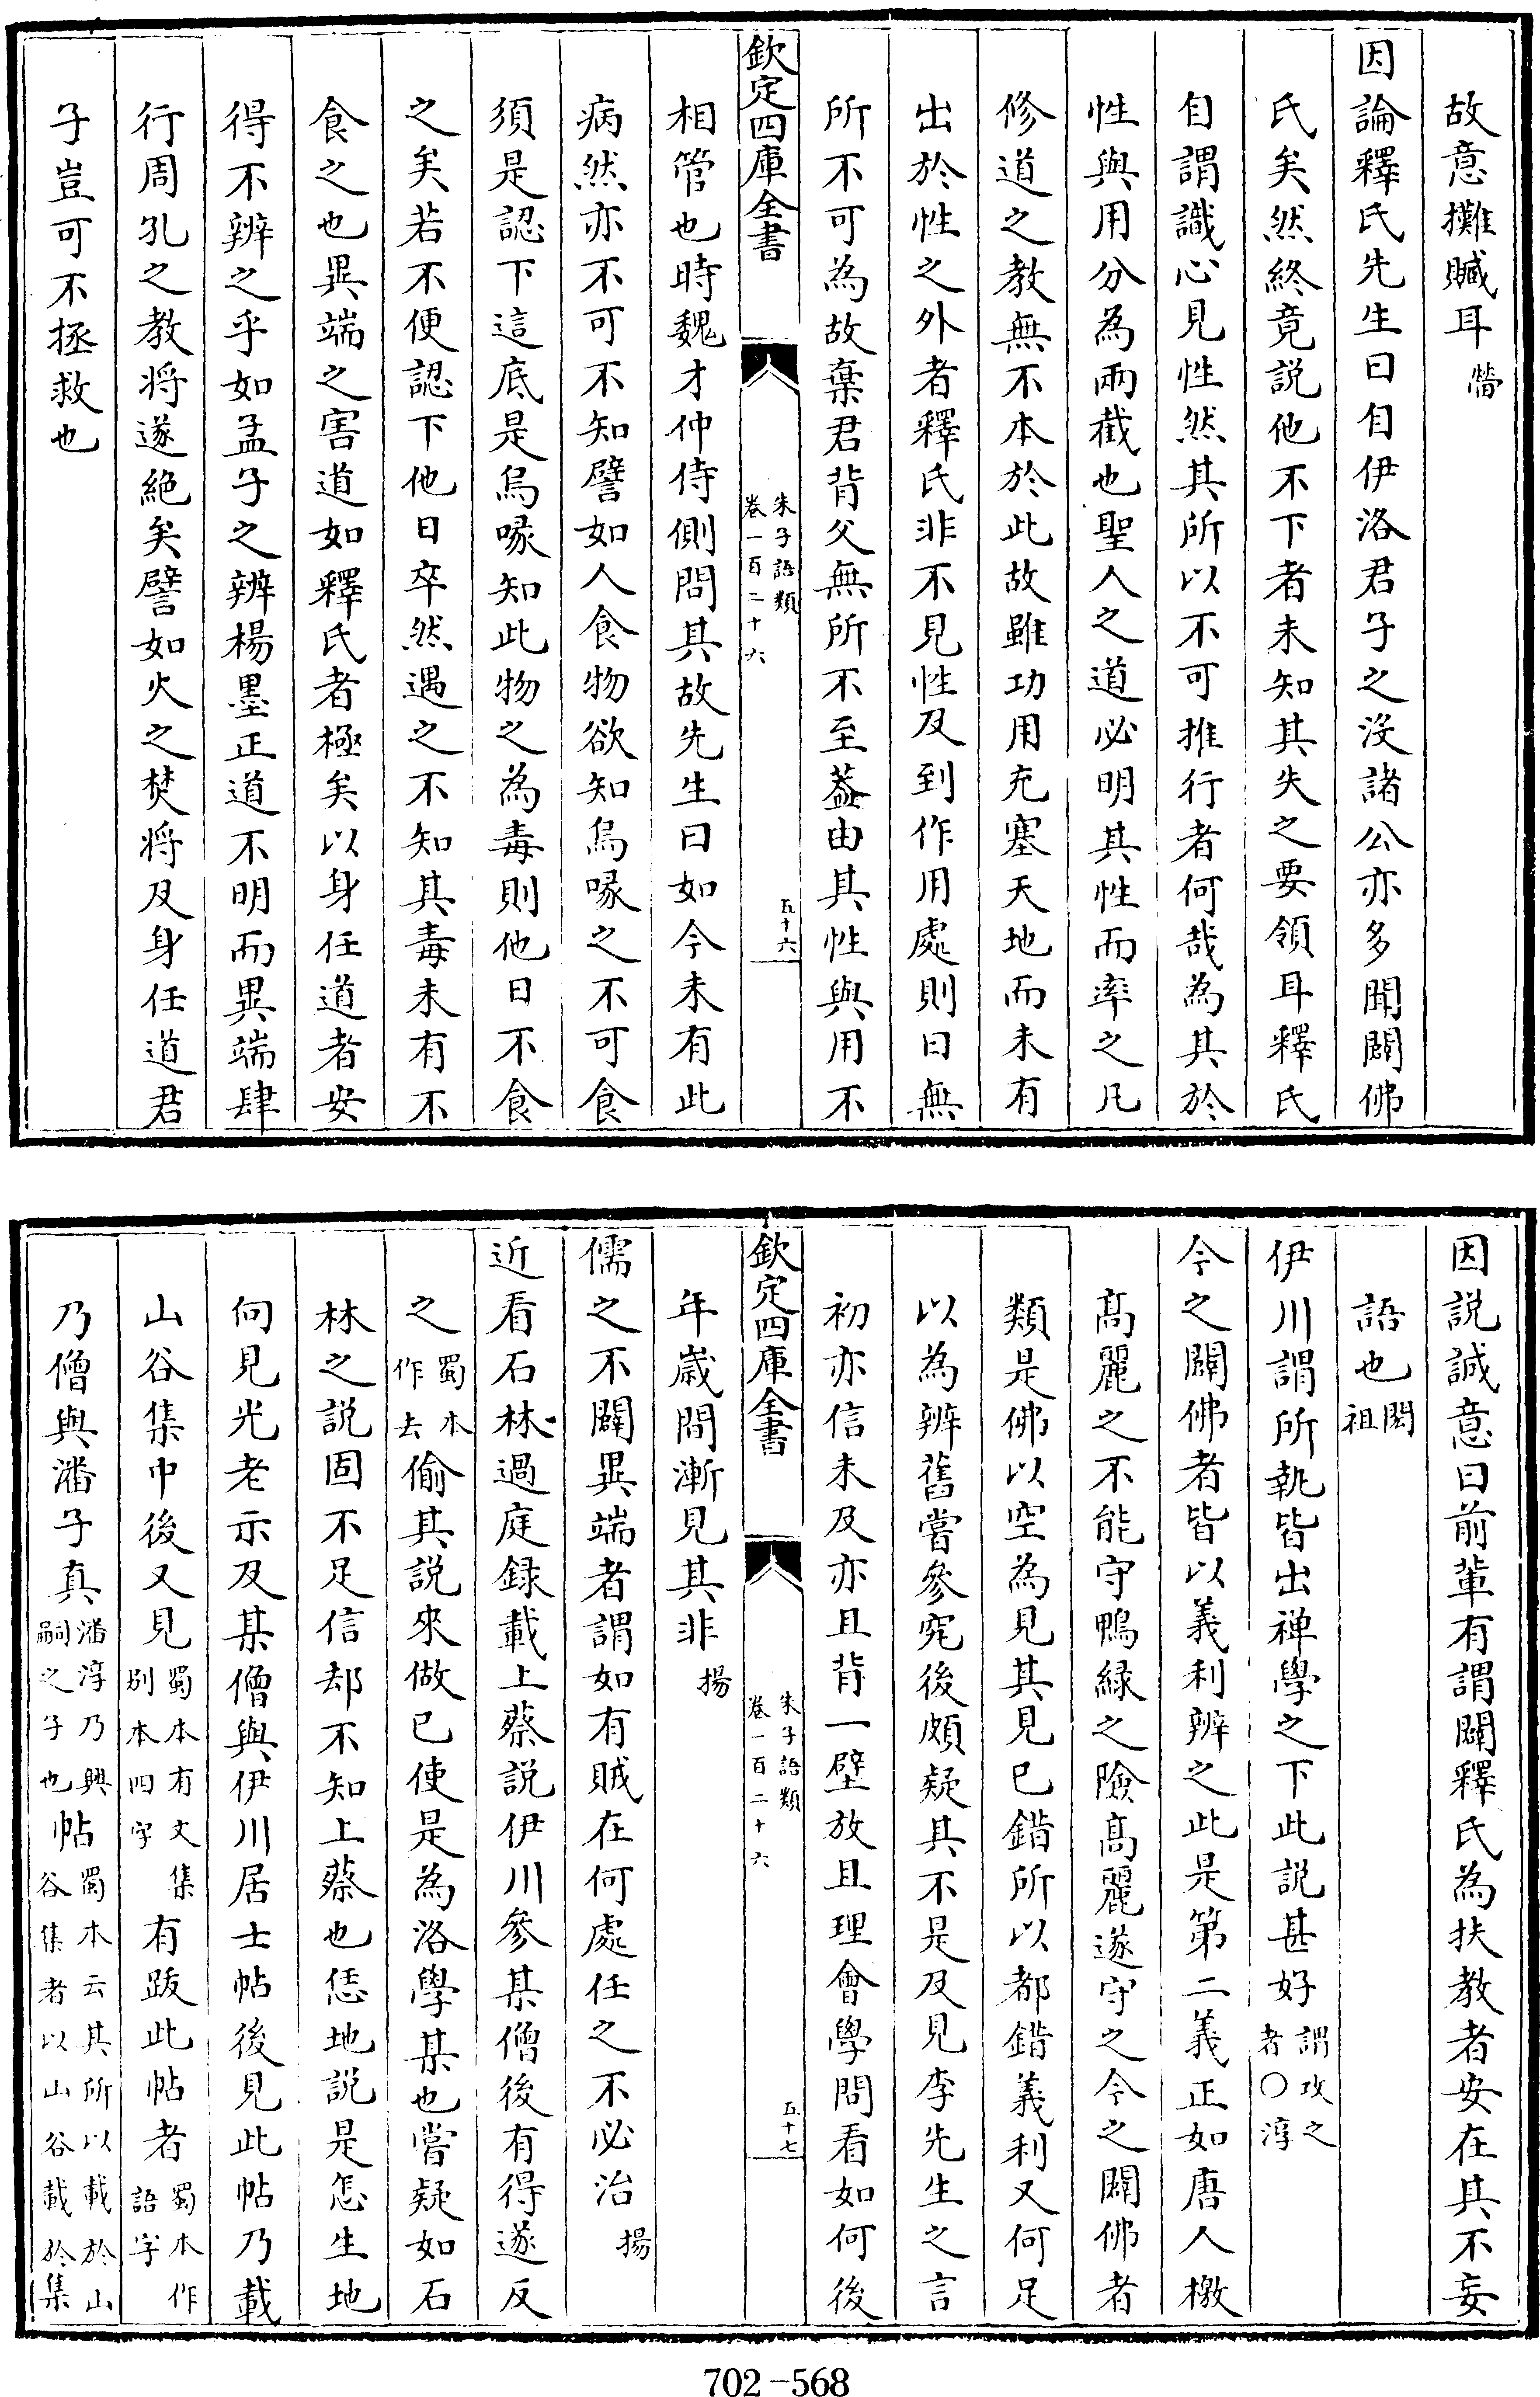 故意攤贓耳㬜
因論釋氏先生曰自伊洛君子之沒諸公亦多聞闢佛
氏矣然終竟說他不下者未知其失之要領耳釋氏
自謂識心見性然其所以不可推行者何哉為其於
性與用分為兩截也聖人之道必明其性而率之凡
修道之教無不本於此故雖功用充塞天地而未有
出於性之外者釋氏非不見性及到作用處則曰無
所不可為故棄君背父無所不至葢由其性與用不
欽定四庫全書
朱子語類
卷一百二十六
五十六
相管也時魏才仲侍側問其故先生曰如今未有此
病然亦不可不知譬如人食物欲知烏喙之不可食
須是認下這底是烏喙知此物之為毒則他日不食
之矣若不便認下他日卒然遇之不知其毒未有不
食之也異端之害道如釋氏者極矣以身任道者安
得不辨之乎如孟子之辨楊墨正道不明而異端肆
行周孔之教將遂絶矣譬如火之焚將及身任道君
子豈可不拯救也
因說誠意曰前輩有謂闢釋氏為扶教者安在其不妄
語也閎祖
伊川謂所執皆出禪學之下此說甚好謂攻之者○淳
今之闢佛者皆以義利辨之此是第二義正如唐人檄
髙麗之不能守鴨緑之險髙麗遂守之今之闢佛者
類是佛以空為見其見已錯所以都錯義利又何足
以為辨舊嘗參究後頗疑其不是及見李先生之言
初亦信未及亦且背一壁放且理會學問看如何後
欽定四庫全書
朱子語類
卷一百二十六
五十七
年嵗間漸見其非揚
儒之不闢異端者謂如有賊在何處任之不必治揚
近看石林過庭録載上蔡說伊川參某僧後有得遂反
之蜀本作去偷其說來做已使是為洛學某也嘗疑如石
林之說固不足信却不知上蔡也恁地說是怎生地
向見光老示及某僧與伊川居士帖後見此帖乃載
山谷集中後又見蜀本有文集别本四字有跋此帖者蜀本作語字
乃僧與潘子真潘淳乃興嗣之子也帖蜀本云其所以載於山谷集者以山谷載於集
702-568